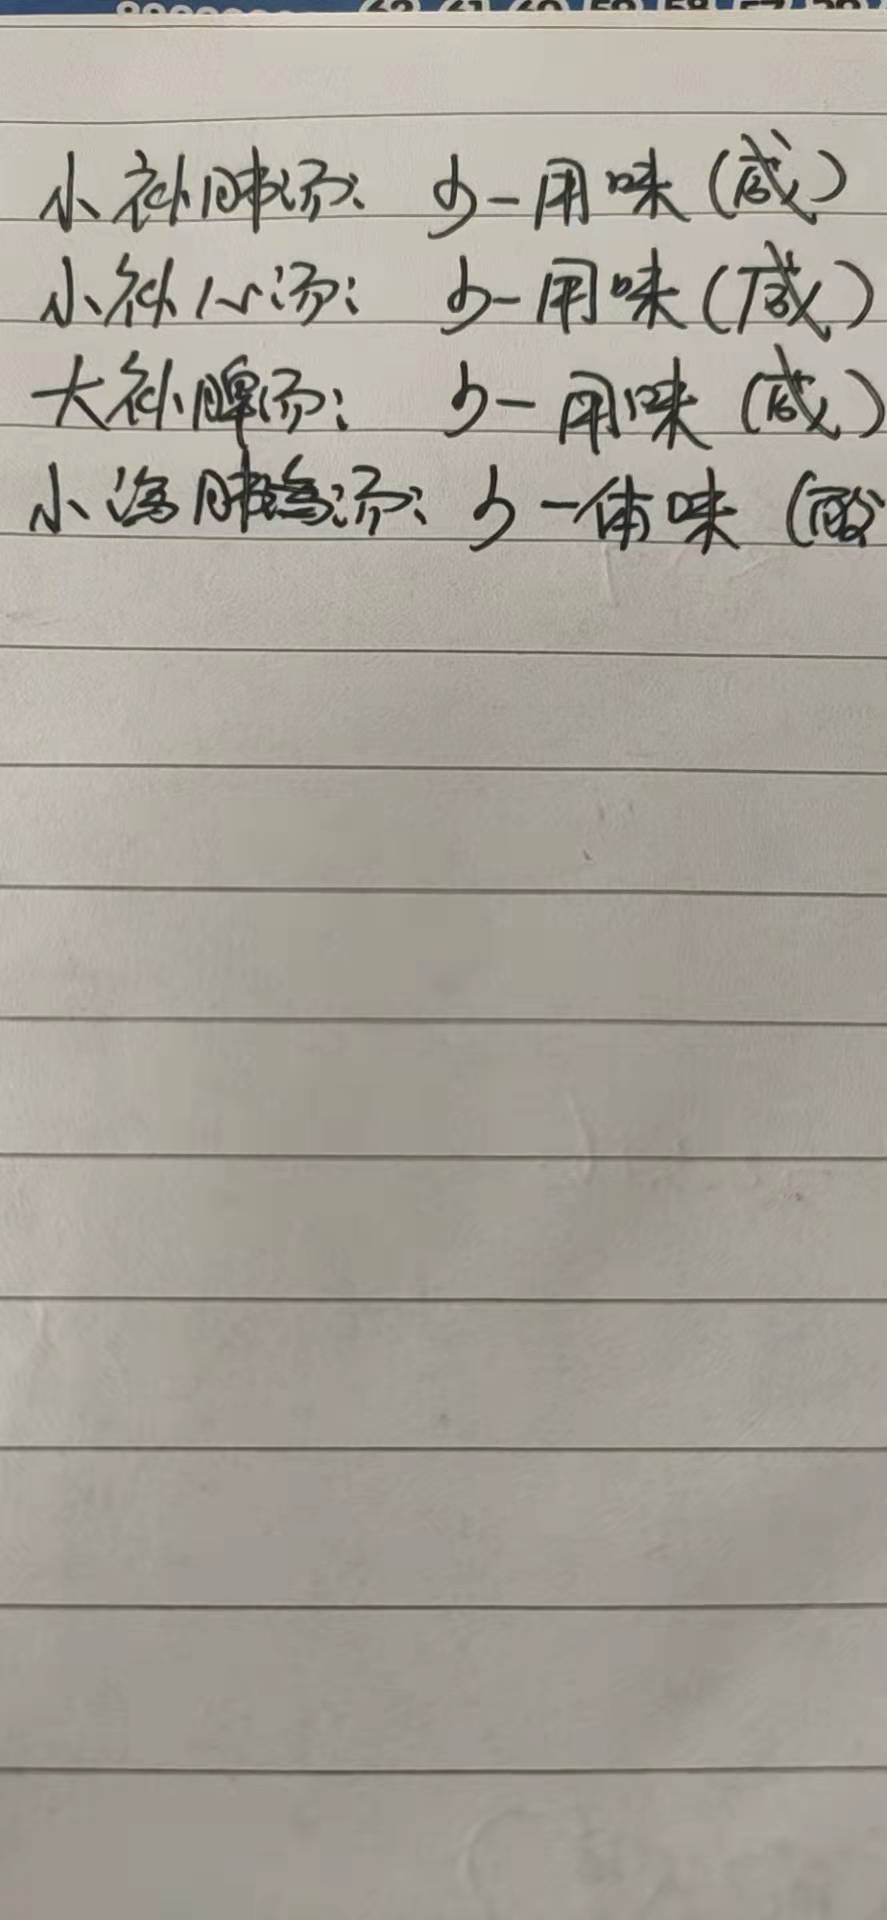 62 61 60 59 58 57
小补肺汤: 少一用味(咸)
小补心汤: 少一用味(咸)
大补脾汤: 少一用味(咸)
小泻肺汤: 少一体味(酸